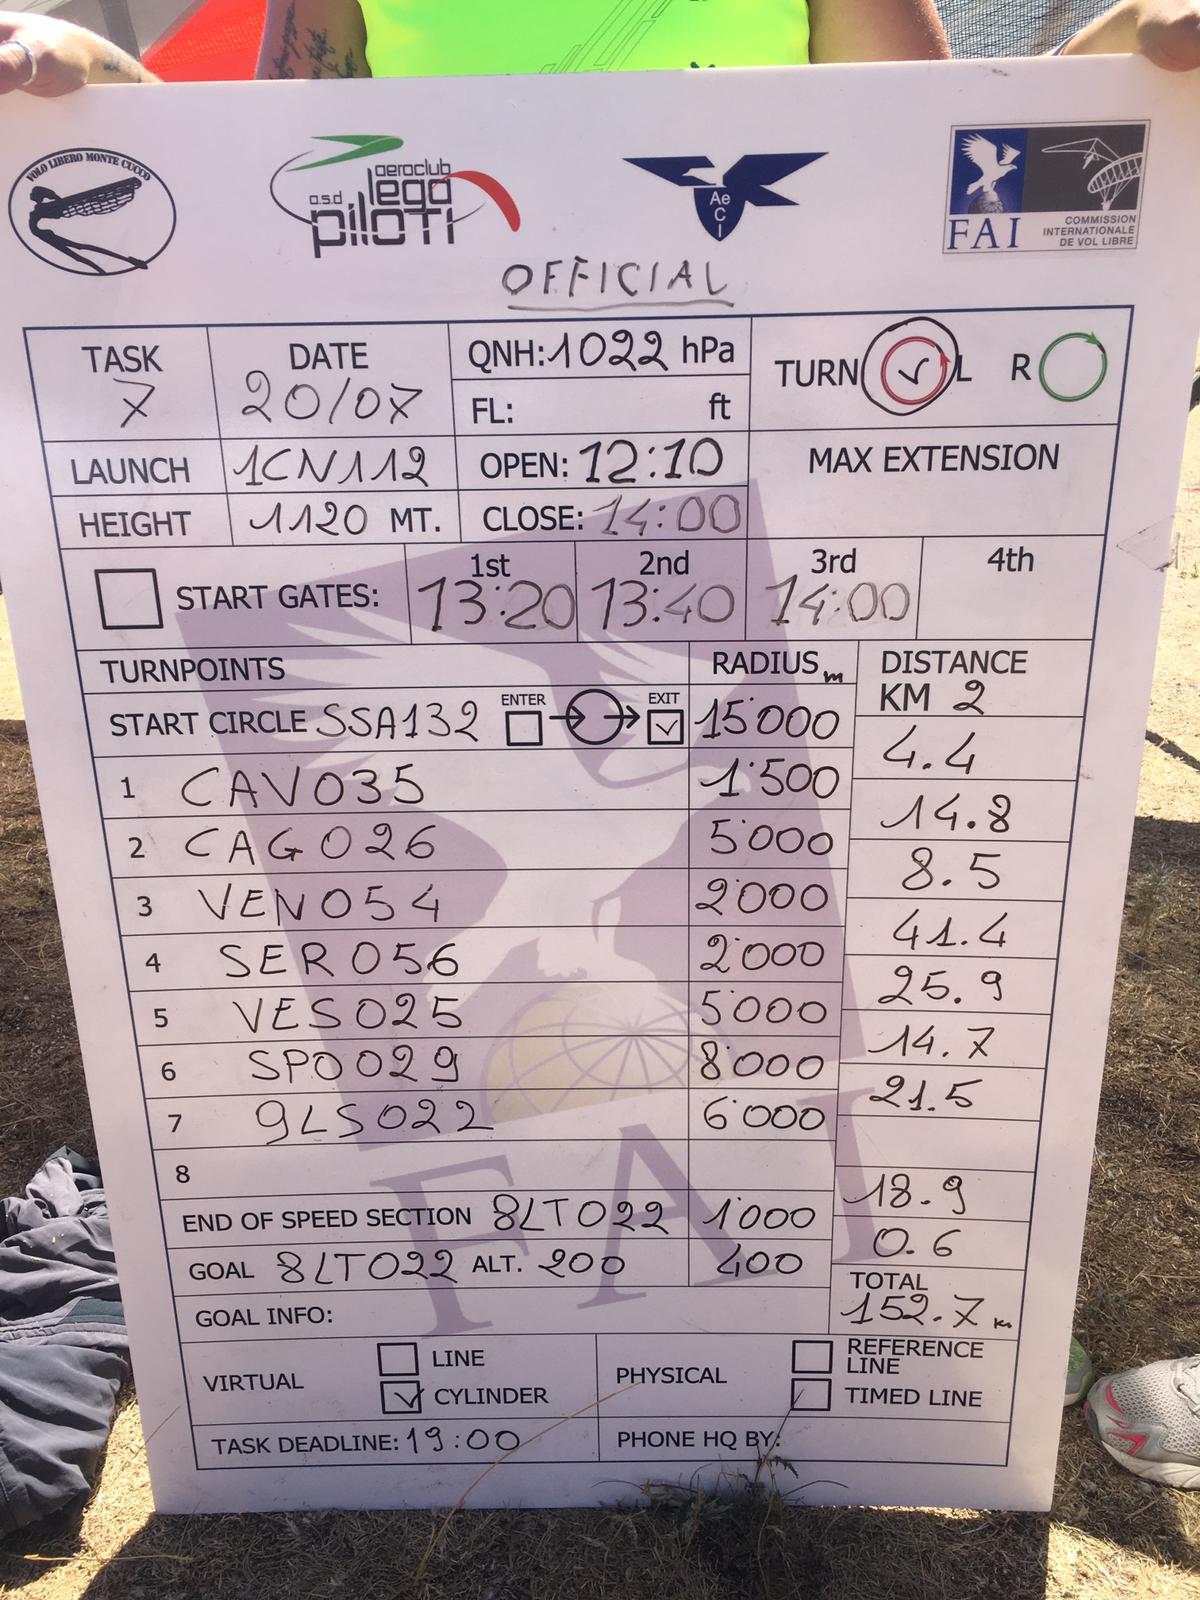 VOLO LIBERO MONTE CUCCO
a.s.d aeroclub lega piloti
Ae C I
FAI COMMISSION INTERNATIONALE DE VOL LIBRE
OFFICIAL
TASK 7
DATE 20/07
QNH: 1022 hPa
FL: ft
TURN L R
LAUNCH 1CN112
OPEN: 12:10
MAX EXTENSION
HEIGHT 1120 MT.
CLOSE: 14:00
START GATES: 1st 13:20 2nd 13:40 3rd 14:00 4th
TURNPOINTS RADIUS m DISTANCE KM 2
START CIRCLE SSA132 ENTER EXIT 15'000 4.4
1 CAV035 1'500 14.8
2 CAG026 5'000 8.5
3 VEN054 2'000 41.4
4 SER056 2'000 25.9
5 VES025 5'000 14.7
6 SPO029 8'000 21.5
7 9LS022 6'000
8 18.9
END OF SPEED SECTION 8LT022 1'000 0.6
GOAL 8LT022 ALT. 200 400
TOTAL 152.7 km
GOAL INFO:
VIRTUAL LINE CYLINDER
PHYSICAL REFERENCE LINE TIMED LINE
TASK DEADLINE: 19:00
PHONE HQ BY:
FAI